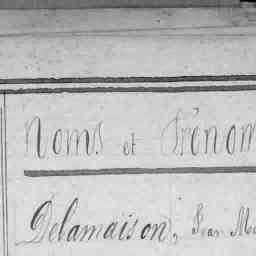 Noms et Prénom
Delamaison, Jean M